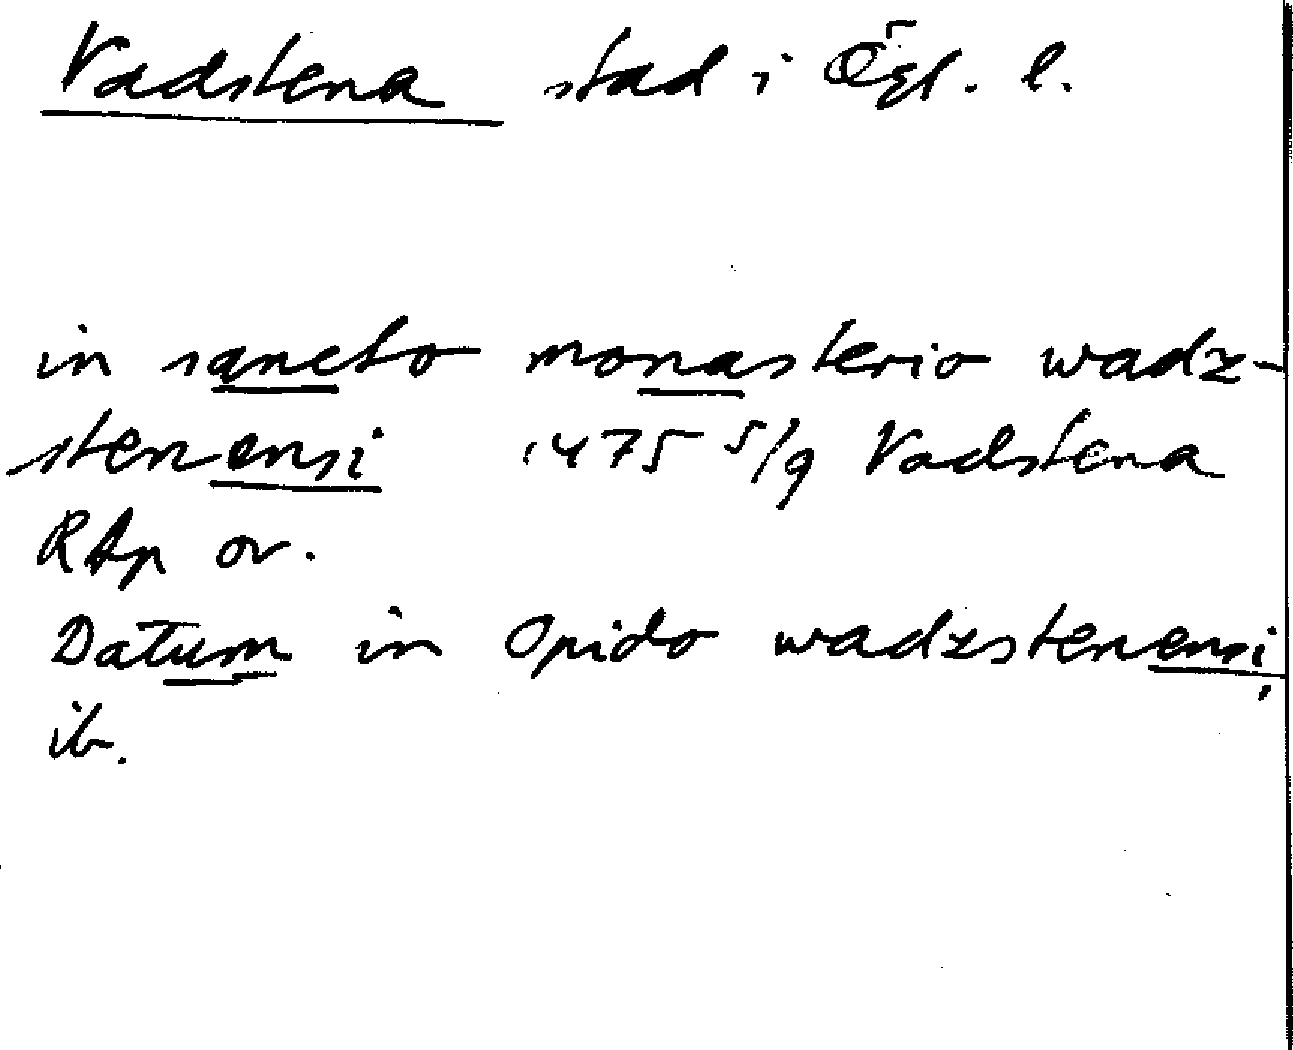 Vadstena stad i Ögl. l.
in sancto monasterio wadz-
stenensi 1475 5/9 Vadstena
RAp or.
Datum in Opido wadzstenensi,
ib.